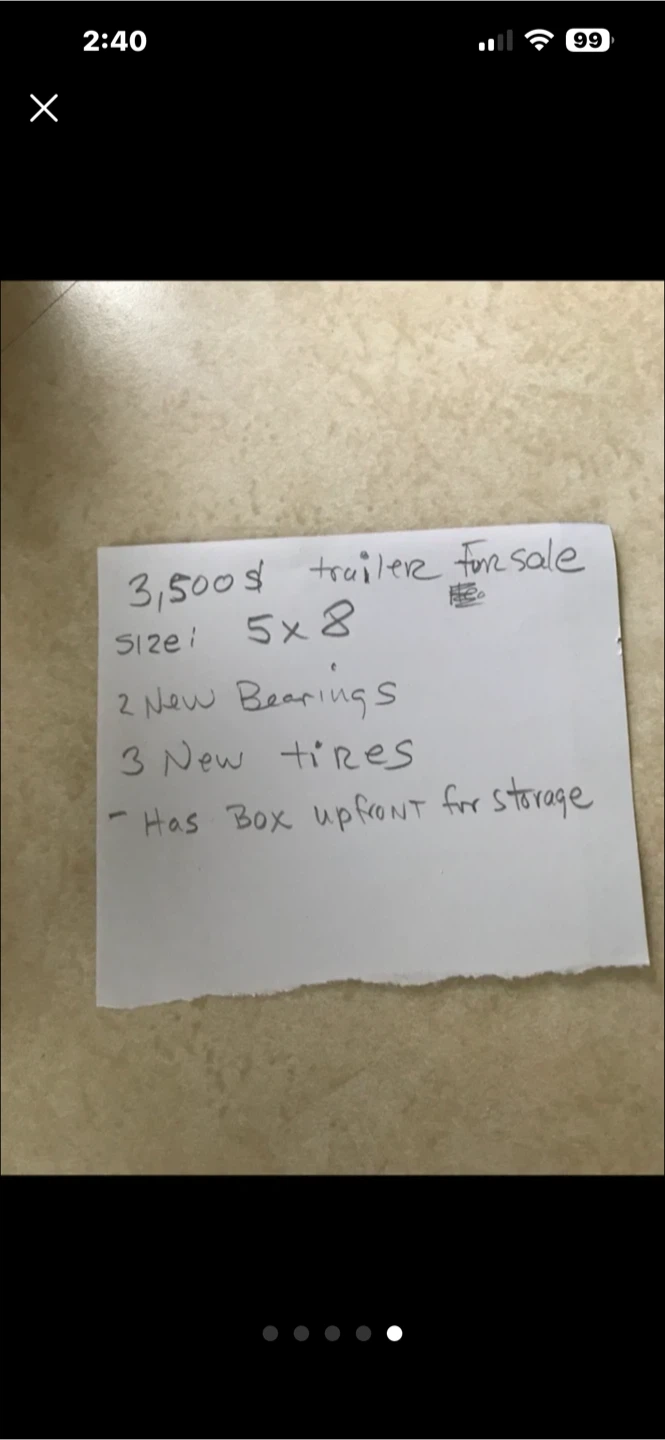 2:40
99
3,500$ trailer for sale
size: 5x8
2 New Bearings
3 New tires
- Has Box upfront for storage